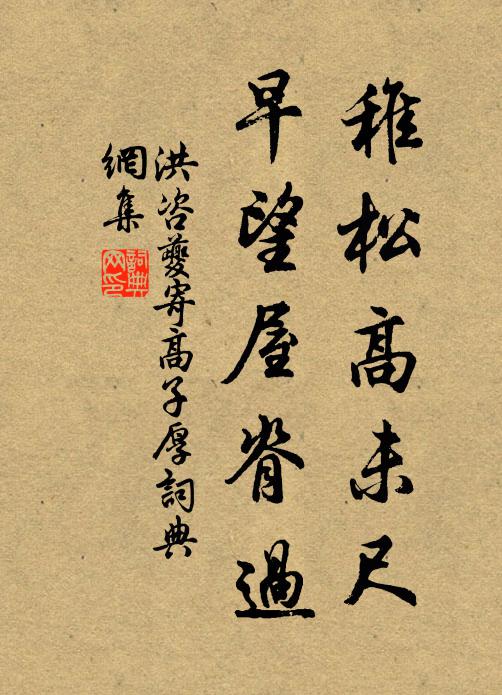 稚松高未尺
早望屋脊過
洪咨夔寄高子厚詞典
網集
詞典
网印